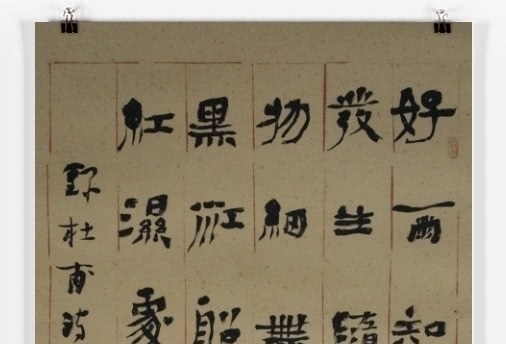 好雨知
發生隨
物細無
黑江船
紅濕處
錄杜甫詩